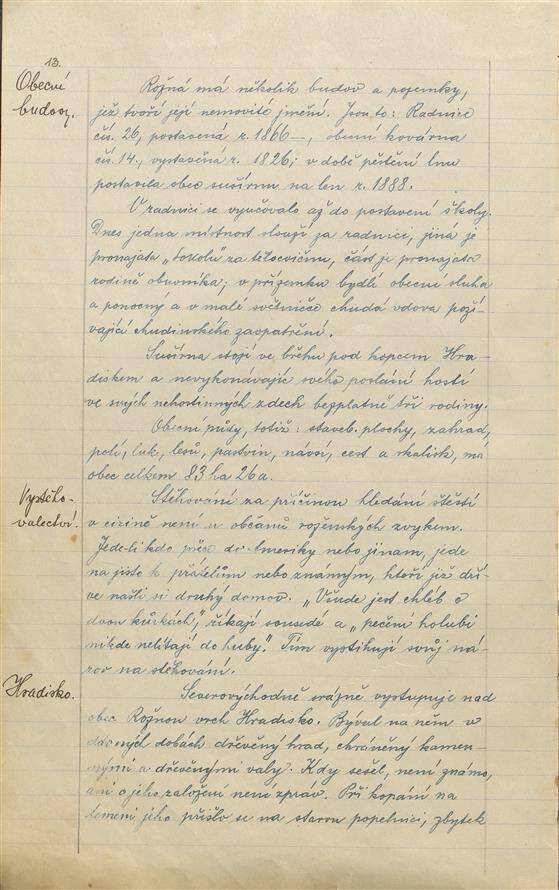 13.
Obecní
budovy.
Rožná má několik budov a pozemky,
jež tvoří její nemovité jmění. Jsou to: Radnice
čís. 26, postavená r. 1866 –, obecní kovárna
čís. 14., vystavěná r. 1826; v době pěstění lnu
postavila obec sušírnu na len r. 1888.
V radnici se vyučovalo až do postavení školy.
Dnes jedna místnost slouží za radnici, jiná je
pronajata „Sokolu" za tělocvičnu, část je pronajata
rodině obuvníka; v přízemku bydlí obecní sluha
a ponocný a v malé světničce chudá vdova poží-
vající chudinského zaopatření.
Sušírna stojí ve břehu pod kopcem Hra-
diskem a nevykonávajíc svého poslání hostí
ve svých nehostinných zdech bezplatně tři rodiny.
Obecní půdy, totiž: staveb. plochy, zahrad,
polí, luk, lesů, pastvin, návsí, cest a skalisk, má
obec celkem 83 ha 26 a.
Vystěho-
valectví.
Stěhování za příčinou hledání štěstí
v cizině není u občanů roženských zvykem.
Jede-li kdo přece do Ameriky nebo jinam, jede
na jisto k přátelům nebo známým, kteří již dří-
ve našli si druhý domov. „Všude jest chléb o
dvou kůrkách," říkají sousedé a „pečení holubi
nikde nelítají do huby." Tím vystihují svůj ná-
zor na stěhování.
Hradisko.
Severovýchodně srázně vystupuje nad
obec Rožnou vrch Hradisko. Býval na něm v
dávných dobách dřevěný hrad, chráněný kamen-
nými a dřevěnými valy. Kdy sešel, není známo,
ani o jeho založení není zpráv. Při kopání na
temeni jeho přišlo se na starou popelnici, zbytek